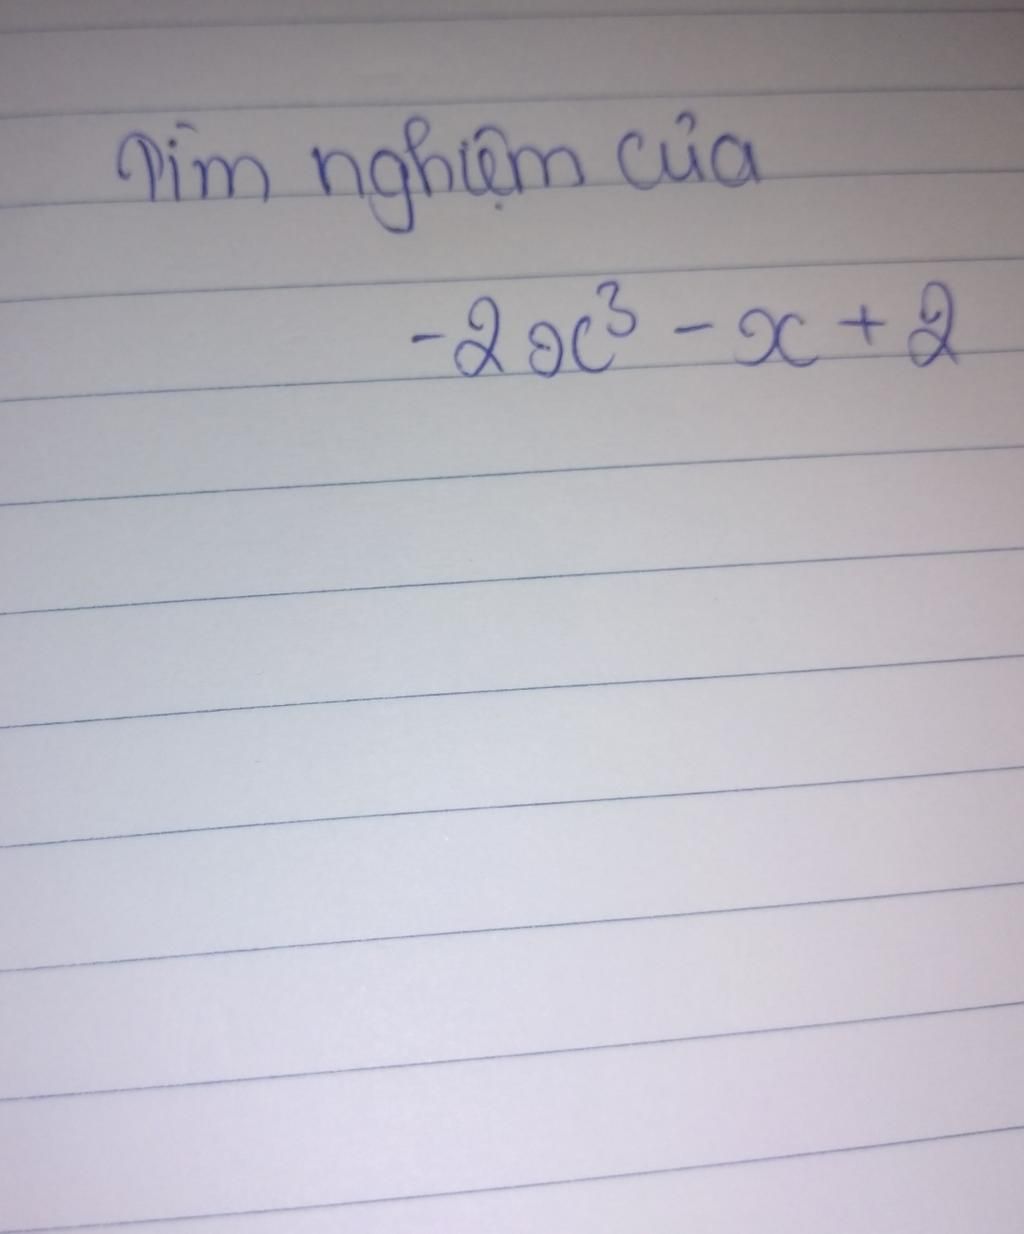 Tìm nghiệm của
-2x³ - x + 2